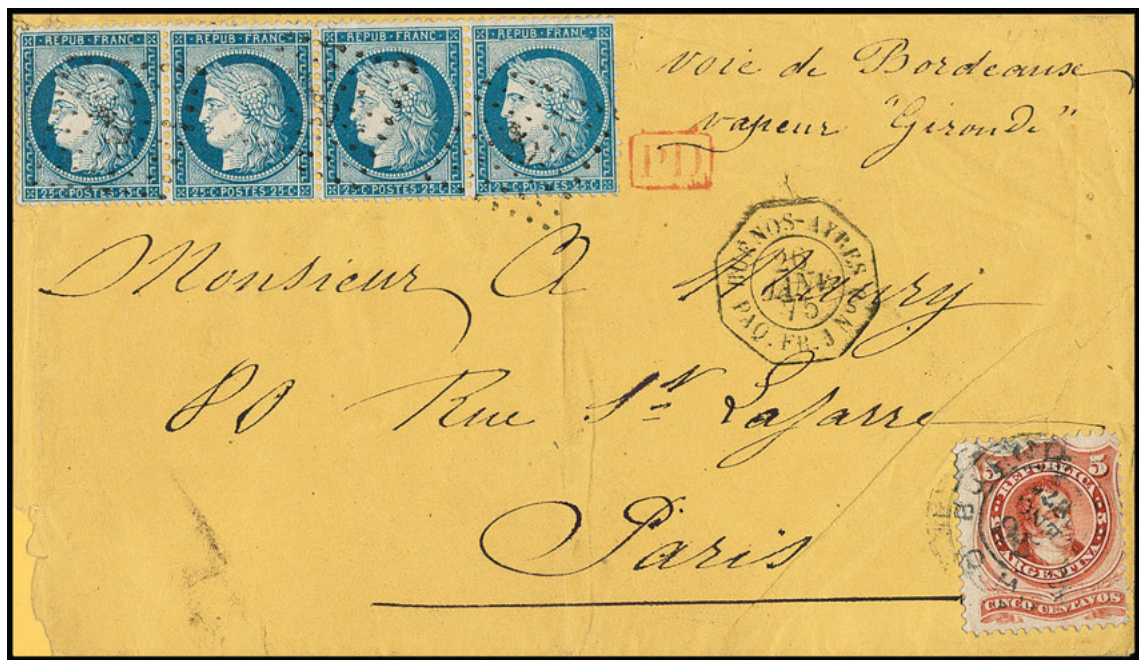 REPUB·FRANC·
25·C·POSTES·25·C·
REPUB·FRANC·
25·C·POSTES·25·C·
REPUB·FRANC·
25·C·POSTES·25·C·
REPUB·FRANC·
25·C·POSTES·25·C·
voie de Bordeause
vapeur "Gironde"
PD
BUENOS-AYRES
26
JANV.
75
PAQ. FR. J No
Monsieur A Maury
80 Rue St Lasarre
Paris
5 5
REPÚBLICA
5 5
ARGENTINA
CINCO CENTAVOS